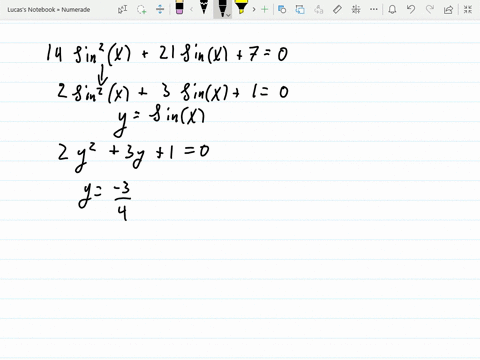 Lucas's Notebook » Numerade
14 sin²(x) + 21 sin(x) + 7 = 0
↓
2 sin²(x) + 3 sin(x) + 1 = 0
y = sin(x)
2y² + 3y + 1 = 0
y = -3/4